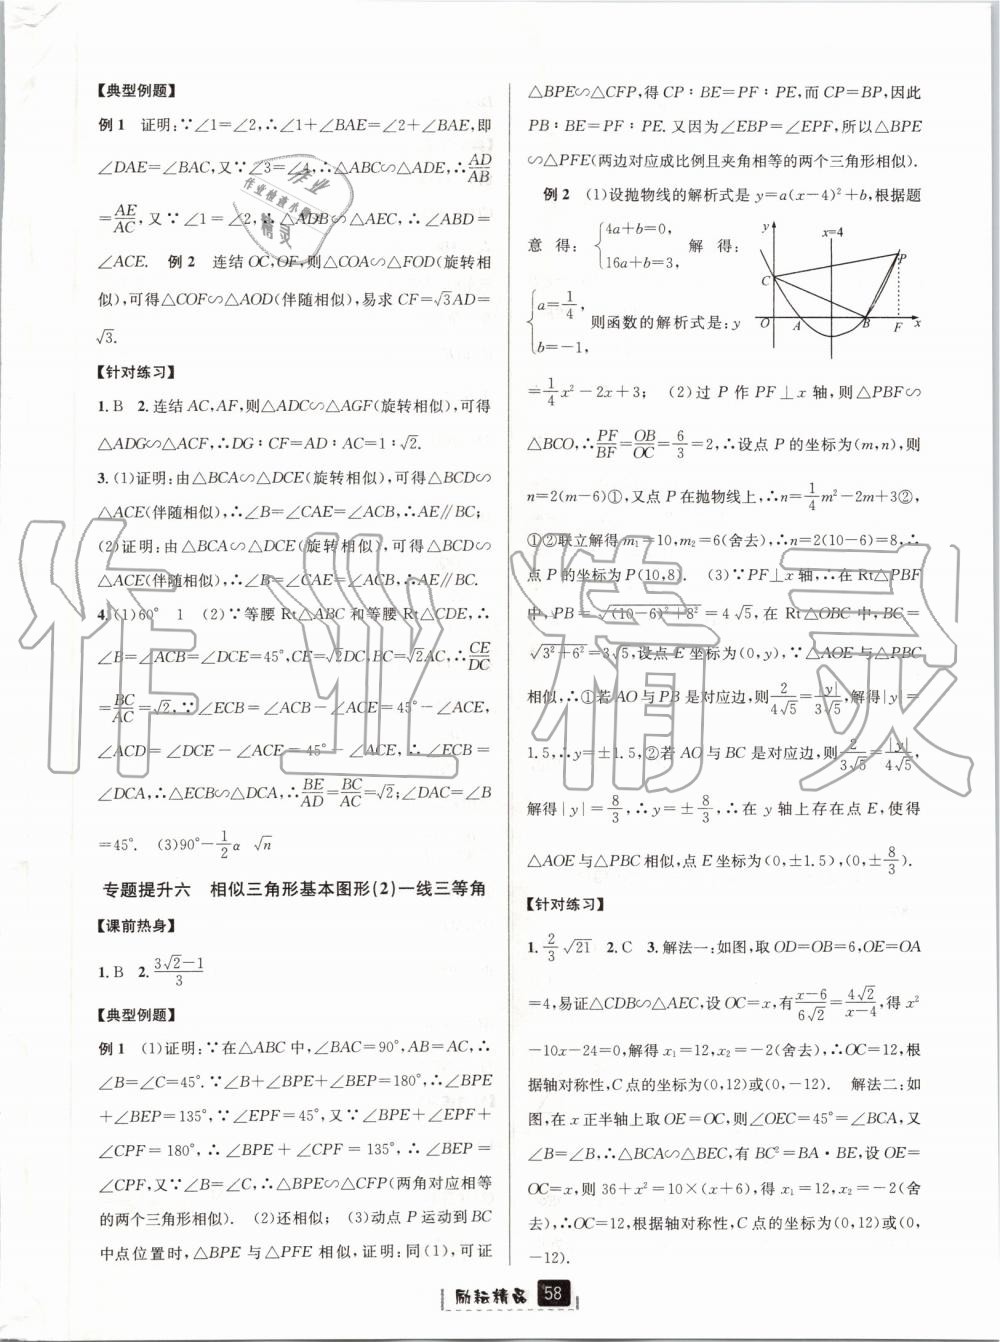 【典型例题】
例1 证明:∵∠1=∠2,∴∠1+∠BAE=∠2+∠BAE,即
∠DAE=∠BAC,又∵∠3=∠4,∴△ABC∽△ADE,∴AD/AB
=AE/AC,又∵∠1=∠2,∴△ADB∽△AEC,∴∠ABD=
∠ACE. 例2 连结OC,OF,则△COA∽△FOD(旋转相
似),可得△COF∽△AOD(伴随相似),易求CF=√3AD=
√3.
【针对练习】
1.B 2.连结AC,AF,则△ADC∽△AGF(旋转相似),可得
△ADG∽△ACF,∴DG∶CF=AD∶AC=1∶√2.
3.(1)证明:由△BCA∽△DCE(旋转相似),可得△BCD∽
△ACE(伴随相似),∴∠B=∠CAE=∠ACB,∴AE∥BC;
(2)证明:由△BCA∽△DCE(旋转相似),可得△BCD∽
△ACE(伴随相似),∴∠B=∠CAE=∠ACB,∴AE∥BC.
4.(1)60° 1 (2)∵等腰Rt△ABC和等腰Rt△CDE,∴
∠B=∠ACB=∠DCE=45°,CE=√2DC,BC=√2AC,∴CE/DC
=BC/AC=√2,∵∠ECB=∠ACB-∠ACE=45°-∠ACE,
∠ACD=∠DCE-∠ACE=45°-∠ACE,∴∠ECB=
∠DCA,∴△ECB∽△DCA,∴BE/AD=BC/AC=√2;∠DAC=∠B
=45°. (3)90°-1/2α √n
专题提升六 相似三角形基本图形(2)一线三等角
【课前热身】
1.B 2.(3√2-1)/3
【典型例题】
例1 (1)证明:∵在△ABC中,∠BAC=90°,AB=AC,∴
∠B=∠C=45°.∵∠B+∠BPE+∠BEP=180°,∴∠BPE
+∠BEP=135°,∵∠EPF=45°,又∵∠BPE+∠EPF+
∠CPF=180°,∴∠BPE+∠CPF=135°,∴∠BEP=
∠CPF,又∵∠B=∠C,∴△BPE∽△CFP(两角对应相等
的两个三角形相似). (2)还相似; (3)动点P运动到BC
中点位置时,△BPE与△PFE相似,证明:同(1),可证
△BPE∽△CFP,得CP∶BE=PF∶PE,而CP=BP,因此
PB∶BE=PF∶PE.又因为∠EBP=∠EPF,所以△BPE
∽△PFE(两边对应成比例且夹角相等的两个三角形相似).
例2 (1)设抛物线的解析式是y=a(x-4)²+b,根据题
意得:{4a+b=0, 16a+b=3, 解得:
{a=1/4, b=-1, 则函数的解析式是:y
y x=4 P C O A B F x
=1/4x²-2x+3; (2)过P作PF⊥x轴,则△PBF∽
△BCO,∴PF/BF=OB/OC=6/3=2,∴设点P的坐标为(m,n),则
n=2(m-6)①,又点P在抛物线上,∴n=1/4m²-2m+3②,
①②联立解得m₁=10,m₂=6(舍去),∴n=2(10-6)=8,∴
点P的坐标为P(10,8). (3)∵PF⊥x轴,∴在Rt△PBF
中,PB=√((10-6)²+8²)=4√5,在Rt△OBC中,BC=
√(3²+6²)=3√5,设点E坐标为(0,y),∵△AOE与△PBC
相似,∴①若AO与PB是对应边,则2/(4√5)=|y|/(3√5),解得|y|=
1.5,∴y=±1.5,②若AO与BC是对应边,则2/(3√5)=|y|/(4√5),
解得|y|=8/3,∴y=±8/3,∴在y轴上存在点E,使得
△AOE与△PBC相似,点E坐标为(0,±1.5),(0,±8/3).
【针对练习】
1.2/3√21 2.C 3.解法一:如图,取OD=OB=6,OE=OA
=4,易证△CDB∽△AEC,设OC=x,有(x-6)/(6√2)=(4√2)/(x-4),得x²
-10x-24=0,解得x₁=12,x₂=-2(舍去),∴OC=12,根
据轴对称性,C点的坐标为(0,12)或(0,-12). 解法二:如
图,在x正半轴上取OE=OC,则∠OEC=45°=∠BCA,又
∠B=∠B,∴△BCA∽△BEC,有BC²=BA·BE,设OE=
OC=x,则36+x²=10×(x+6),得x₁=12,x₂=-2(舍
去),∴OC=12,根据轴对称性,C点的坐标为(0,12)或(0,
-12).
励耘精品 58
作业精灵
作业
作业检查小
精灵